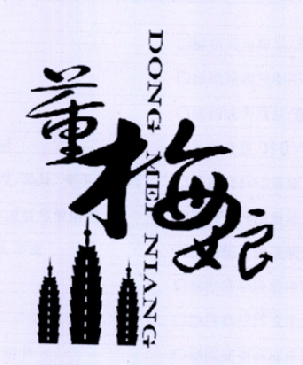 董梅娘
DONG MEI NIANG